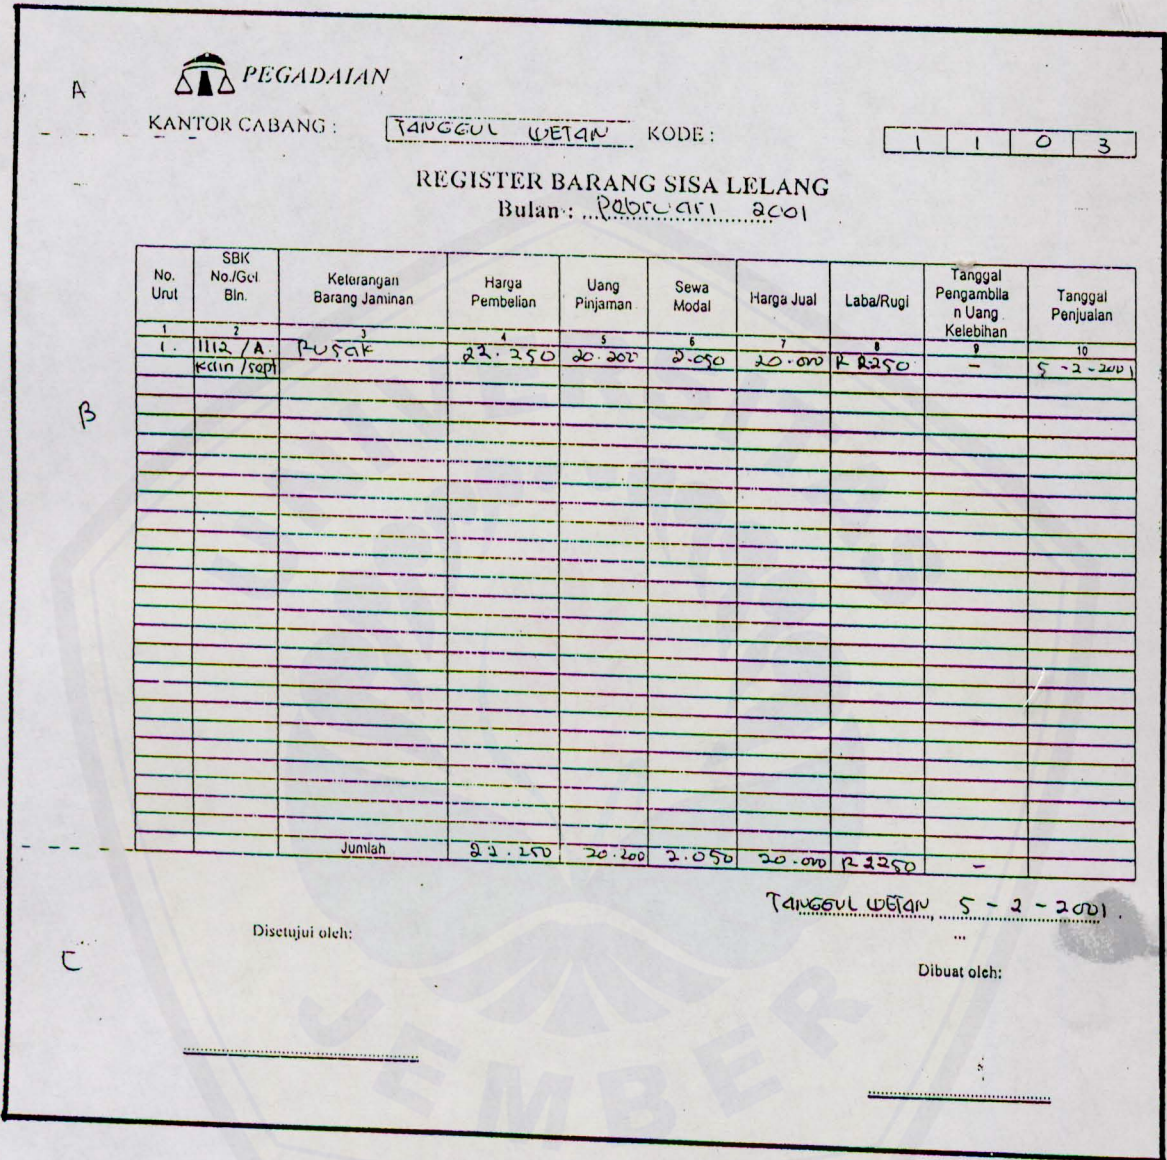 A
PEGADAIAN
KANTOR CABANG : TANGGUL WETAN KODE : 1 1 0 3
REGISTER BARANG SISA LELANG
Bulan : Pebruari 2001
No. Urut | SBK No./Gol. Bln. | Keterangan Barang Jaminan | Harga Pembelian | Uang Pinjaman | Sewa Modal | Harga Jual | Laba/Rugi | Tanggal Pengambila n Uang Kelebihan | Tanggal Penjualan
1 2 3 4 5 6 7 8 9 10
1. 1112 / A. Rusak 22.250 20.200 2.050 20.000 R 2250 - 5 - 2 - 2001
Kain / sept
B
Jumlah 22.250 20.200 2.050 20.000 R 2250 -
TANGGUL WETAN, 5 - 2 - 2001.
Disetujui oleh:
C
Dibuat oleh:
UNIVERSITAS
JEMBER